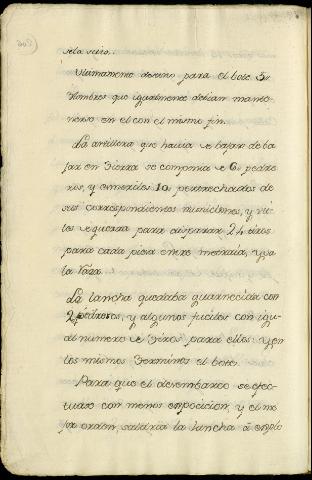 sela seiro..
Ultimamente destino para el bote 5
Hombres que igualmente debian mante-
nerse en el con el mismo fin.
La artilleria que havia de bajar de ba
jar en Tierra se componia de 6 pedre
ros, y esmeriles 10 pertrechados de
sus correspondientes municiones, y uti
les de guerra para disparar 24 tiros
para cada pieza entre metralla, y
la
La lancha quedaba guarnecida con
2 pedreros, y algunos fusiles con igu-
al numero de Tiros para ellos: y en
los mismos Terminos el bote.
Para que el desembarco se efec-
tuase con menos oposicion, y el me
jor orden, saldria la lancha à